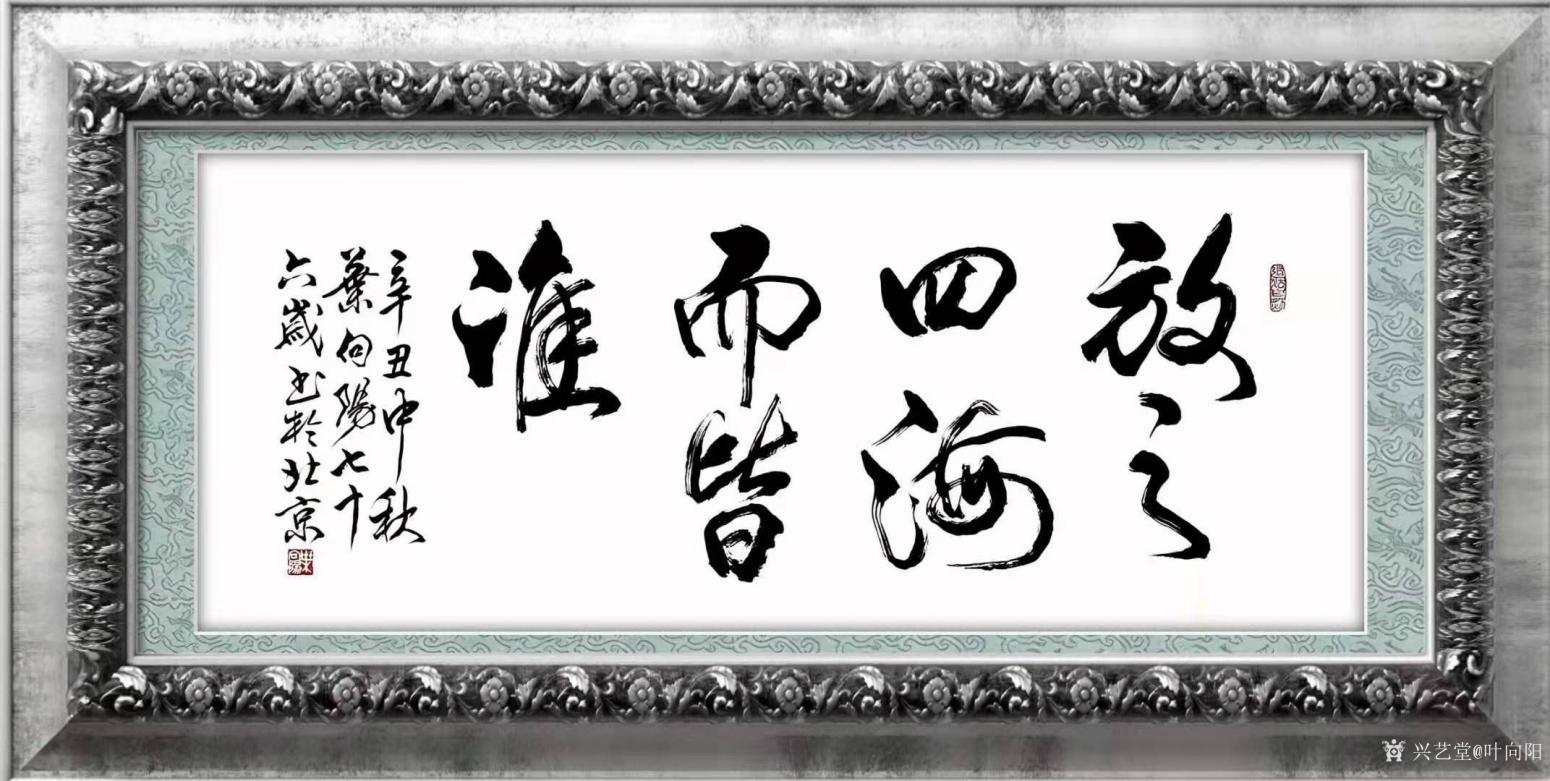 放之
四海
而皆
准
辛丑中秋
葉向陽七十
六歲书於北京
兴艺堂@叶向阳